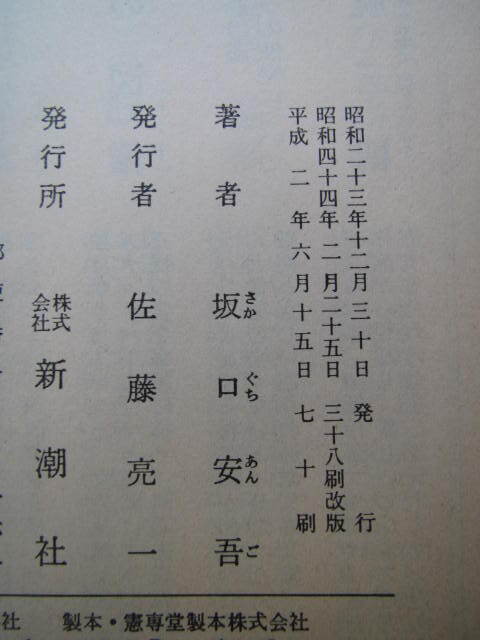 昭和二十三年十二月三十日 発行
昭和四十四年二月二十五日 三十八刷改版
平成二年六月十五日 七十刷
著者 坂口安吾
さか ぐち あん ご
発行者 佐藤亮一
発行所 株式会社 新潮社
社 製本・憲専堂製本株式会社